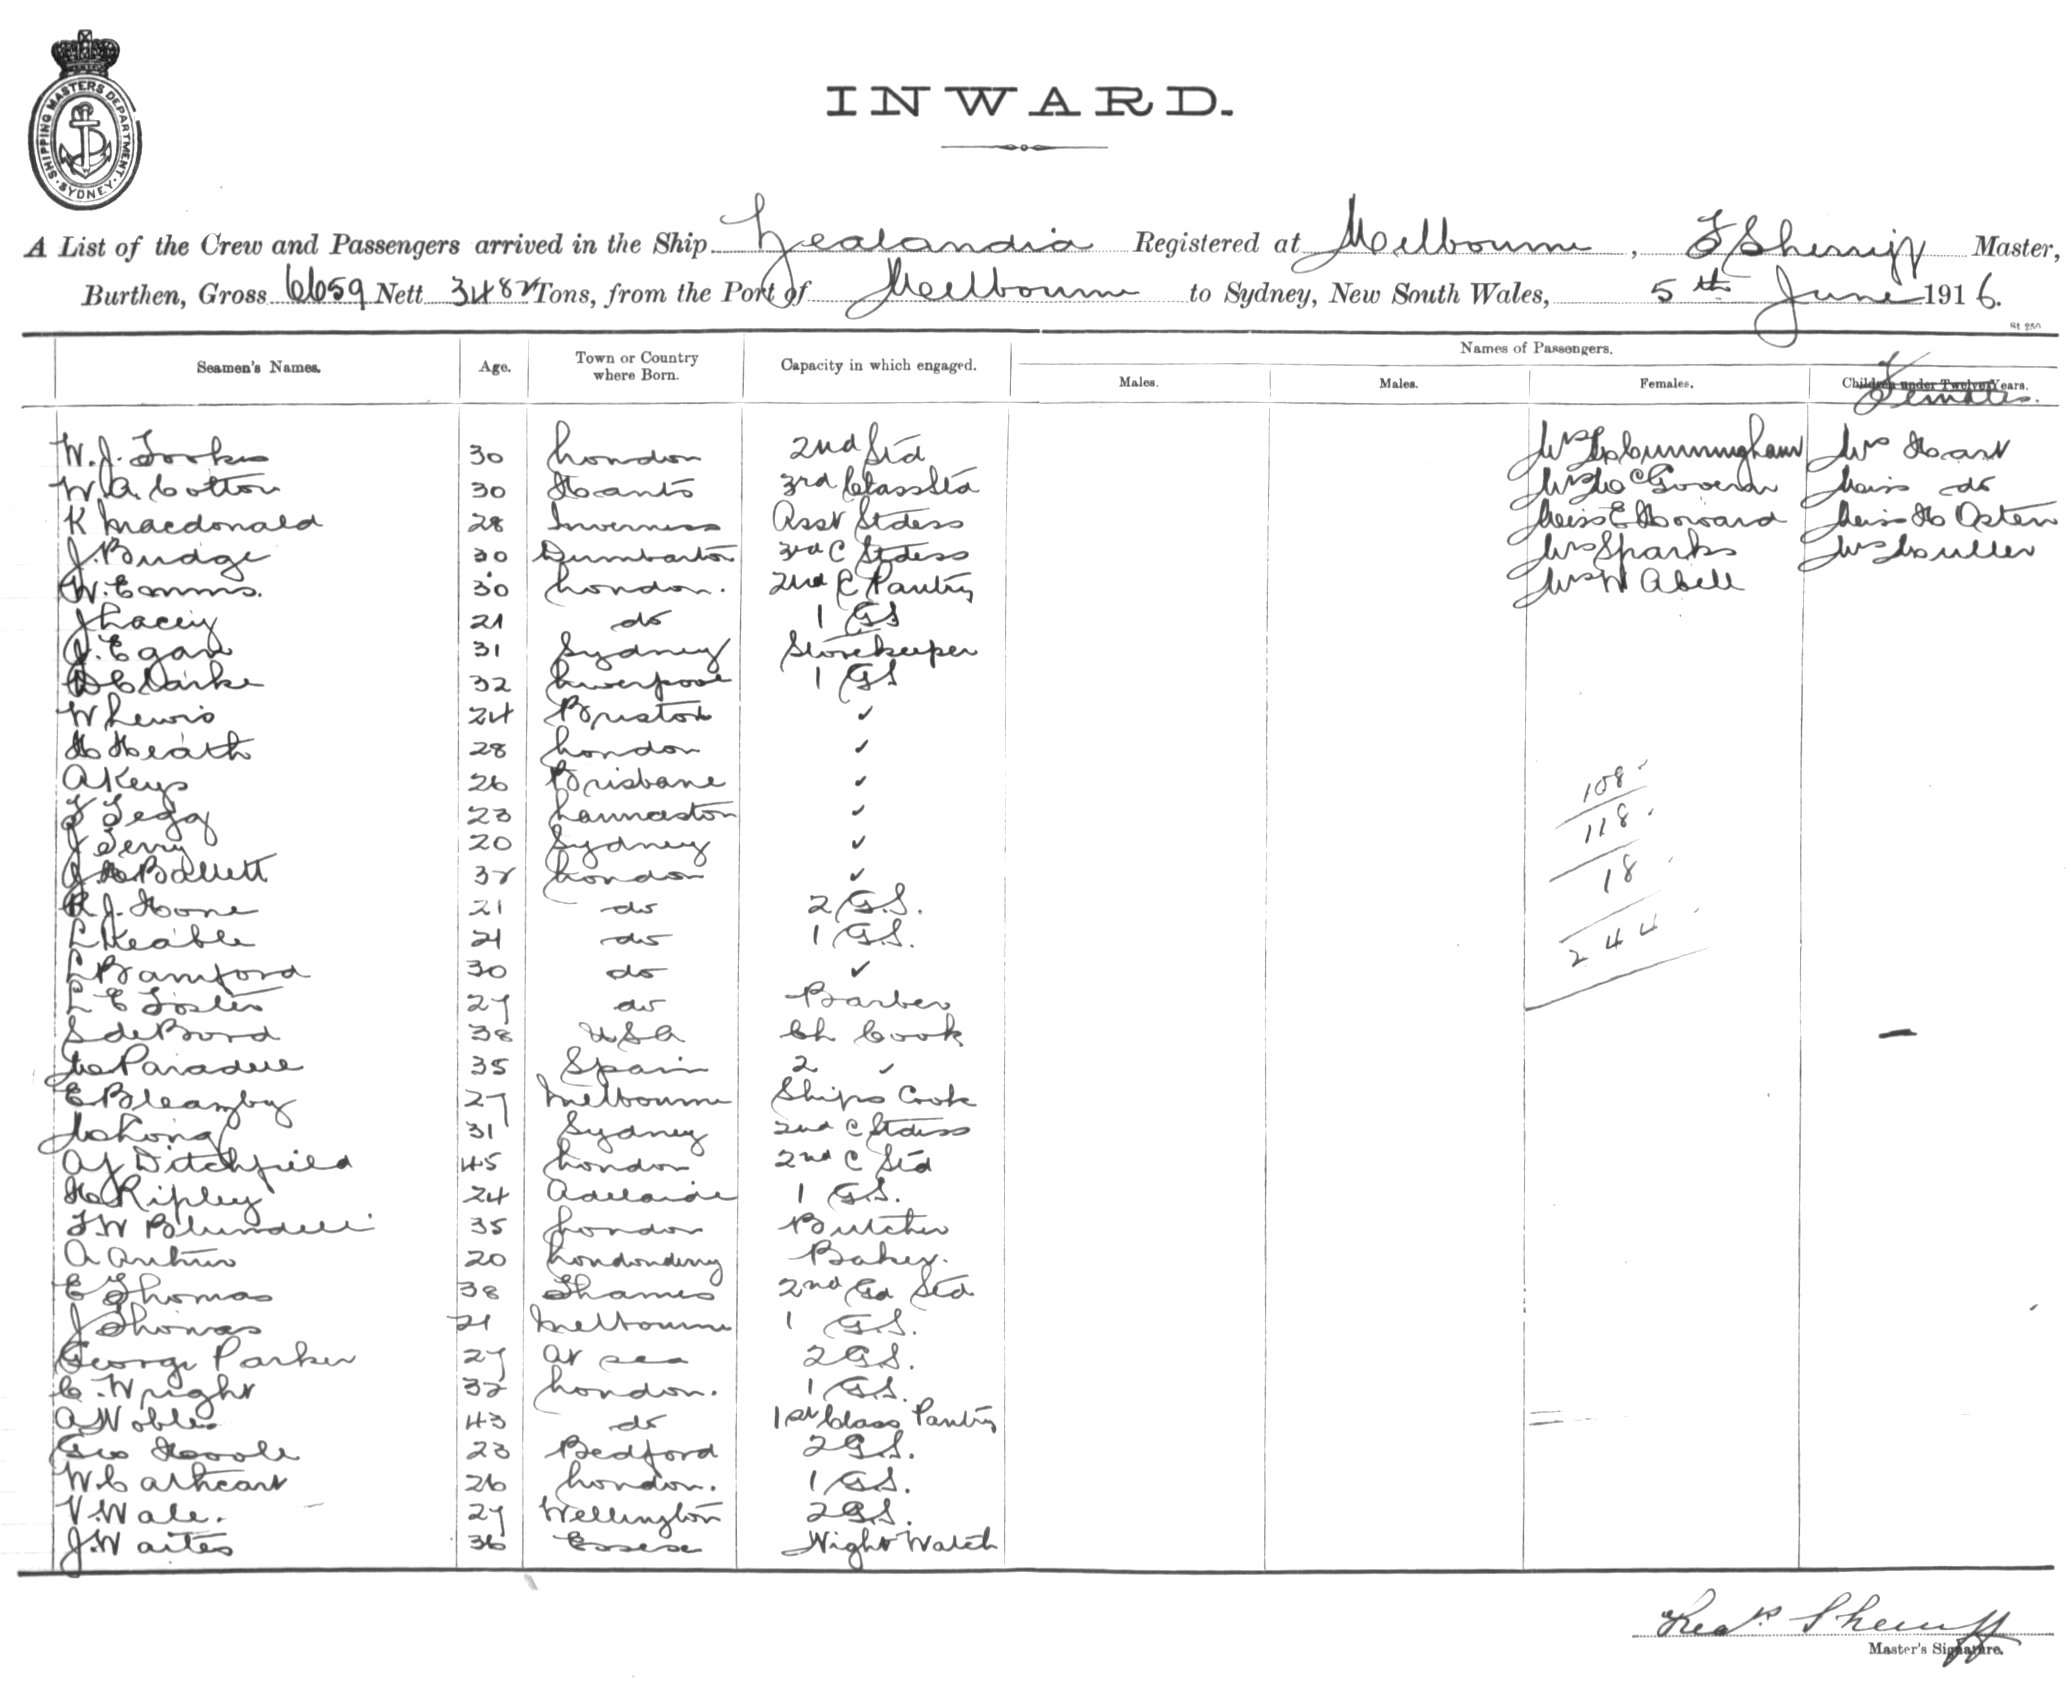 SHIPPING MASTERS DEPARTMENT
SYDNEY
INWARD.
A List of the Crew and Passengers arrived in the Ship Zealandia Registered at Melbourne, F Sherriff Master,
Burthen, Gross 6659 Nett 3482 Tons, from the Port of Melbourne to Sydney, New South Wales, 5th June 1916.
Seamen's Names. Age. Town or Country where Born. Capacity in which engaged. Names of Passengers.
Males. Males. Females. Children under Twelve Years. Females.
W. J. 30 London 2nd Std Mrs Cunningham Mrs Hart
W. A. Cotton 30 Hants 3rd Class Std Mrs McGovern Miss do
K Macdonald 28 Inverness Asst Stdess Miss E Howard Miss H Osten
J. Budge 30 Dumbarton 3rd C Stdess Mrs Sparks Mrs
W. Emms. 30 London. 2nd C Pantry Mrs W Abell
J Lacey 21 do 1 G.S
J. Egan 31 Sydney Storekeeper
D Clarke 32 Liverpool 1 G.S
W Lewis 24 Bristol ✓
H Heath 28 London ✓
A Keys 26 Brisbane ✓
F Tegg 23 Launceston ✓
J Terry 20 Sydney ✓
J. H. Ballett 32 London ✓
R J. Hone 21 do 2 G.S.
L Keable 21 do 1 G.S.
L Bamford 30 do ✓
L E Foster 27 do Barber
S de Bord 38 USA Ch Cook
M Paradell 35 Spain 2 ✓
E Bleazby 27 Melbourne Ships Cook
M King 31 Sydney 2nd C Stdess
A J Ditchfield 45 London 2nd C Std
H Ripley 24 Adelaide 1 G.S.
F W Blundell 35 London Butcher
A Arthur 20 Londonderry Baker.
E Thomas 38 Thames 2nd Std
J Thomas 21 Melbourne 1 G.S.
George Parker 27 At sea 2 G.S.
C. Wright 32 London. 1 G.S.
A Nobles 43 do 1st Class Pantry
Geo Hoole 23 Bedford 2 G.S.
W. Cathcart 26 London. 1 G.S.
V. Wale. 27 Wellington 2 G.S.
J. Waites 36 Essex Night Watch
108
118
18
244
Fredk Sherriff
Master's Signature.